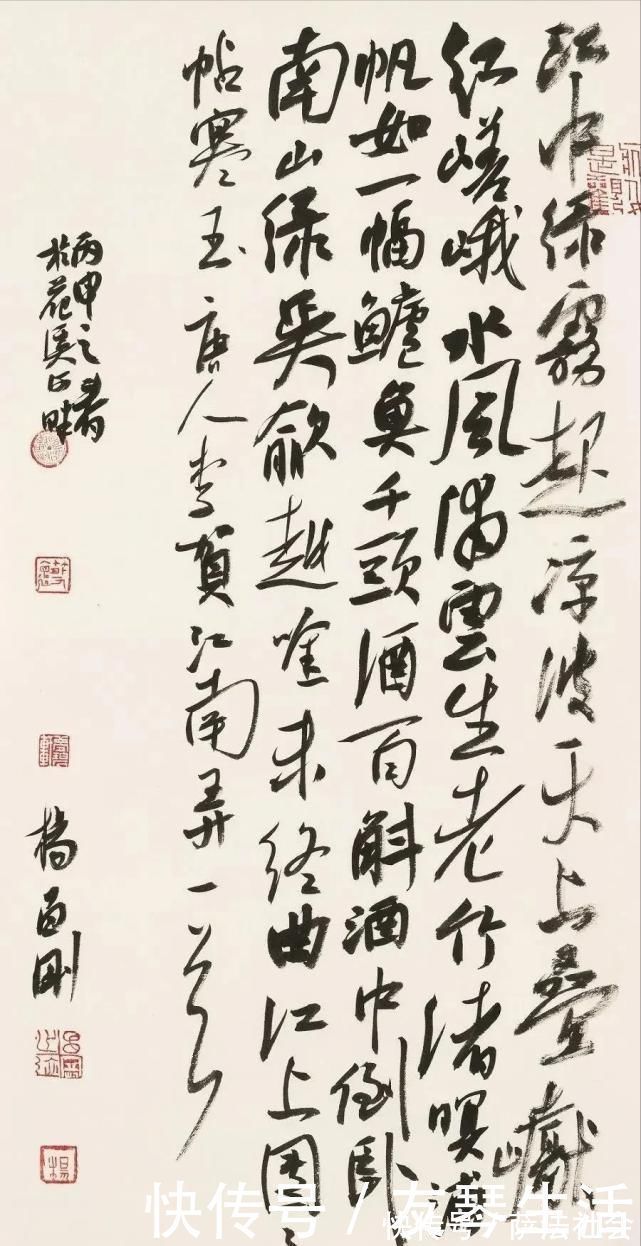 江中绿霧起凉波天上疊巘
红嵯峨水風浦雲生老竹渚暝蒲
帆如一幅鱸魚千頭酒百斛酒中倒卧
南山绿吳歈越吟未终曲江上團々
帖寒玉唐人李賀江南弄一首
丙申之春
於花溪河畔
楊昌刚
楊
快传号 / 友琴生活